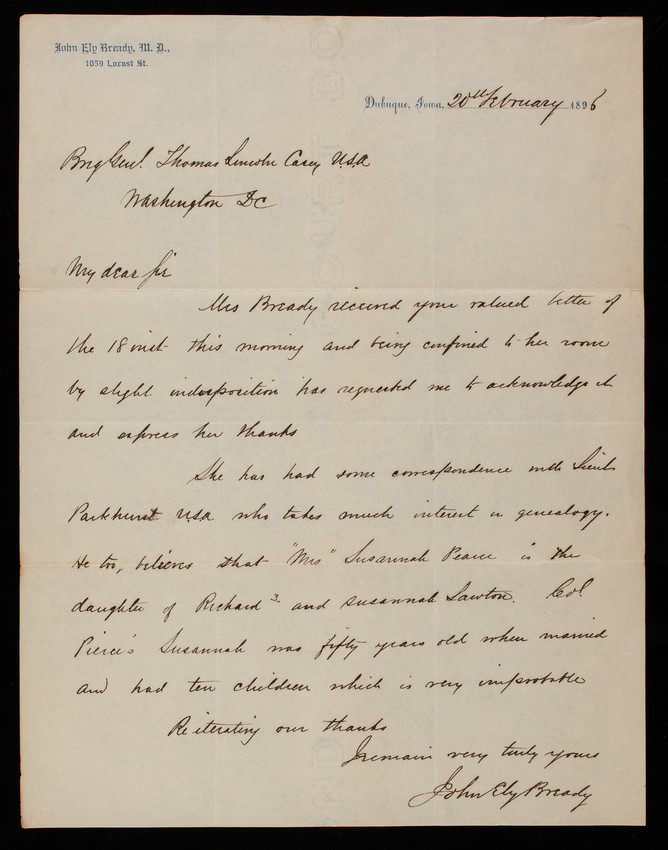 John Ely Bready, M. D.,
1059 Locust St.
Dubuque, Iowa, 20th February 1896
Brig Genl. Thomas Lincoln Casey U.S.A
Washington DC
My dear Sir
Mrs Bready received your valued letter of
the 18 inst this morning and being confined to her room
by slight indisposition has requested me to acknowledge it
and express her thanks
She has had some correspondence with Lieut
Parkhurst U.S.A who takes much interest in genealogy.
He too, believes that "Mrs" Susannah Pearce is the
daughter of Richard 3 and Susannah Lawton. Col.
Pierce's Susannah was fifty years old when married
and had ten children which is very improbable
Reiterating our thanks
I remain very truly yours
John Ely Bready